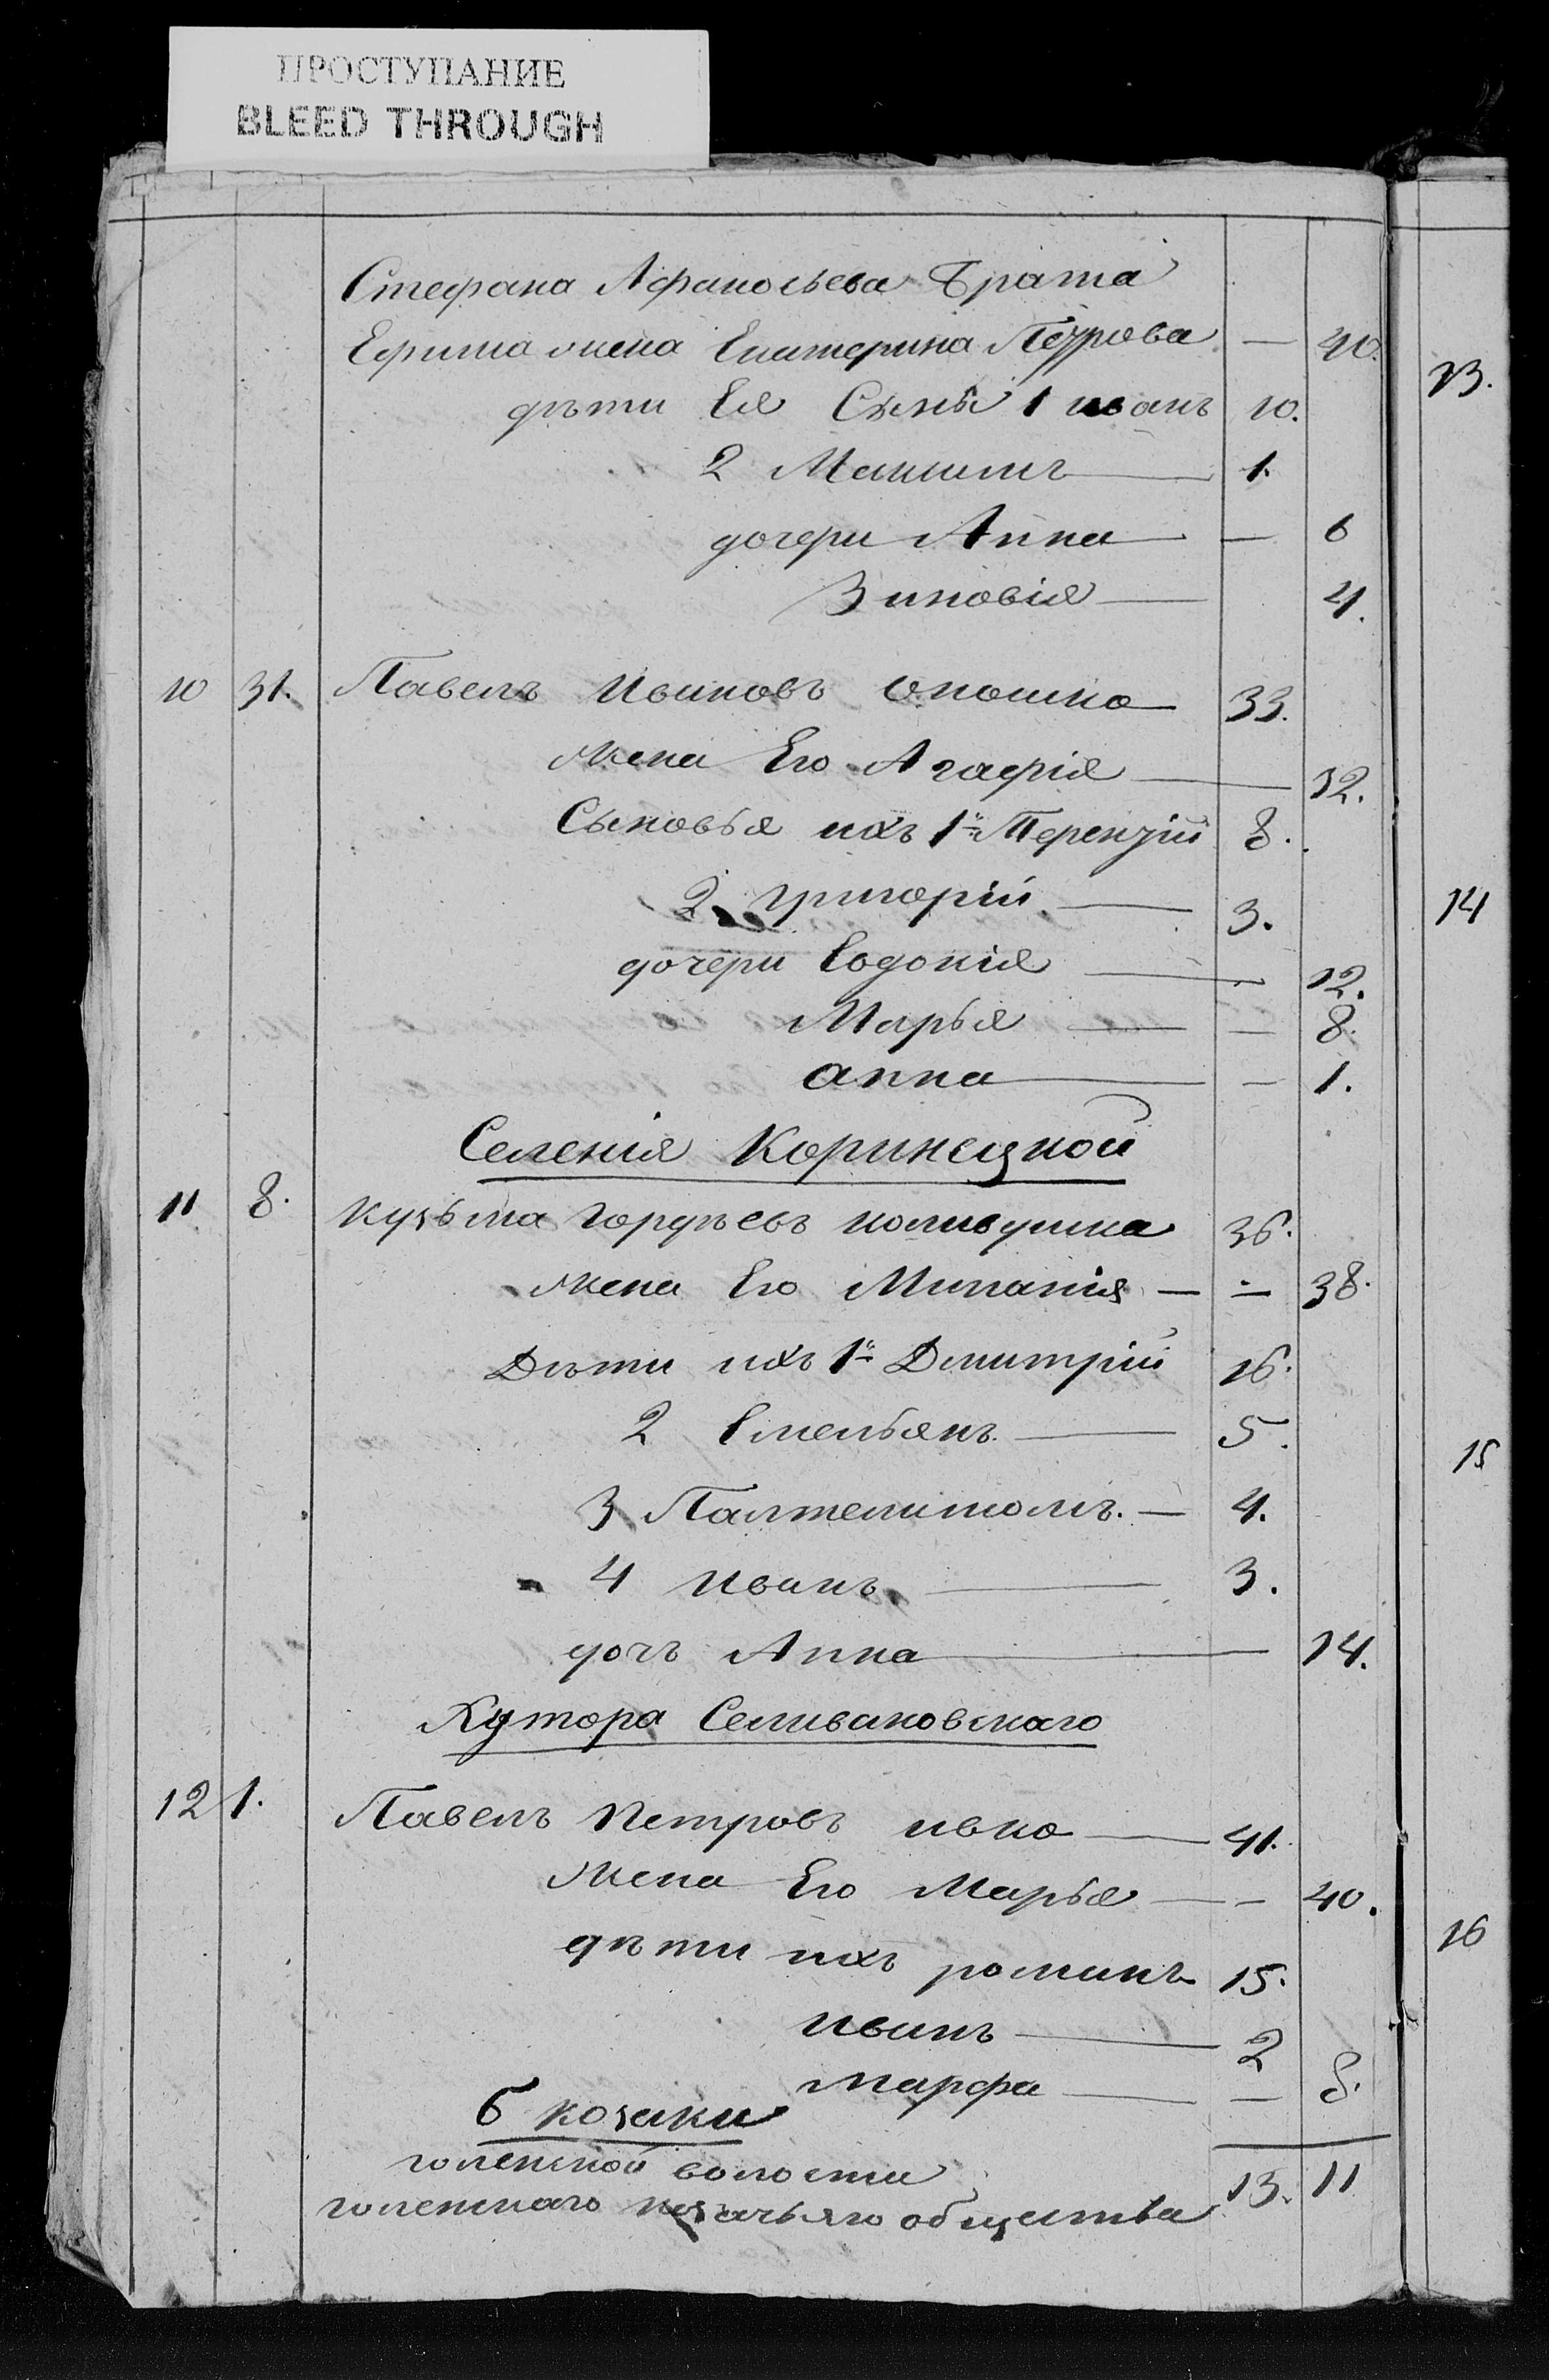 ПРОСТУПАНИЕ
BLEED THROUGH
Стефана Афаносьева Брата
Ефима жена Екатерина Петрова — 40.
дѣти Ея Сынъ 1 иванъ 10.
2 Максимъ 1.
дочери Анна — 6
Зиновія 4.
10 31. Павелъ Ивановъ 33.
жена Его Агафія 32.
Сыновья ихъ 1й Терентій 8.
2 григорій 3.
дочери Евдокія — 12.
Марья — 8.
анна — 1.
Селенія Коринецкой
11 8. кузьма гордѣевъ 36.
жена Его Миланія — 38.
Дѣти ихъ 1й Димитрій 16.
2 Емельянъ 5.
3 Палтелимомъ. — 4.
4 иванъ 3.
дочъ Анна 14.
Хутора Селивановскаго
12 1. Павелъ Петровъ ивко 41.
жена Его Марья — 40.
дѣти ихъ романъ 15.
иванъ 2
марфа — 8.
б козаки
голенской волости
голенскаго козачьяго общества 13. 11
13.
14
15
16